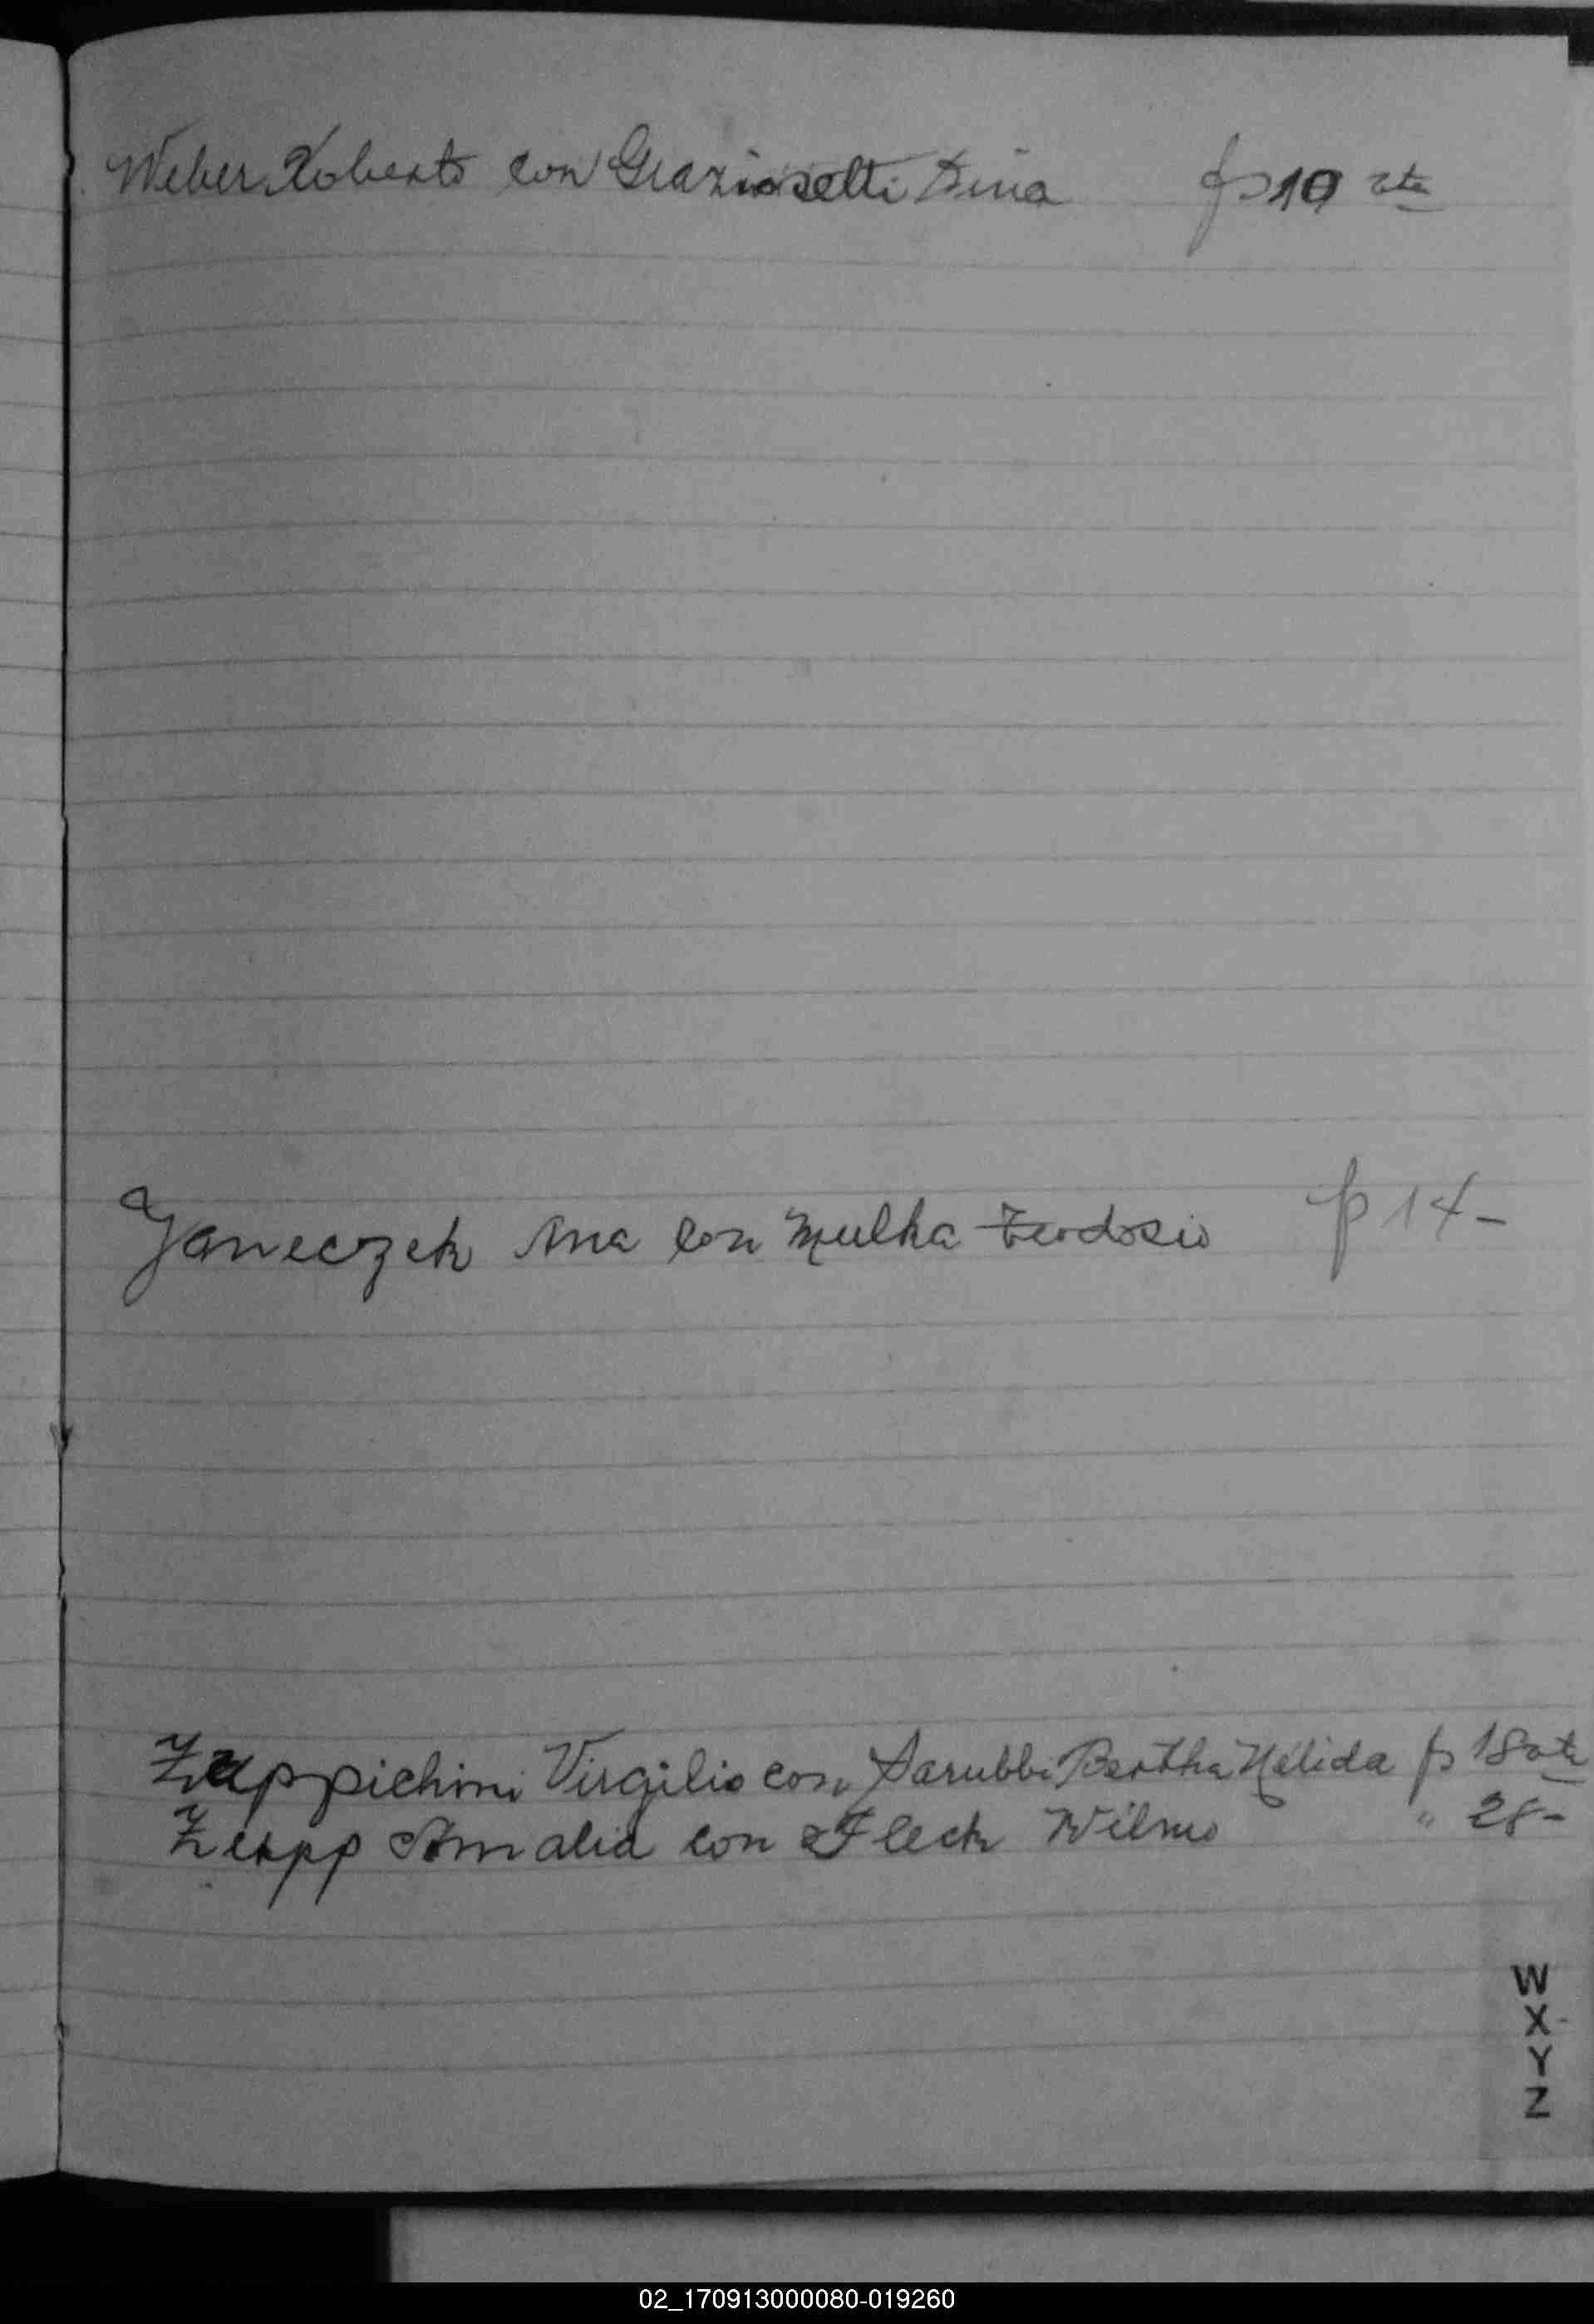 Weber Roberto con Graziosetti Dina fs 10 vta
Yaneczek Ana con Mulka Teodosio fs 14-
Zappichini Virgilio con Sarubbi Bertha Nélida fs 18 vta
Zeupp Amalia con Fleck Wilmo " 28-
W
X
Y
Z
02_170913000080-019260